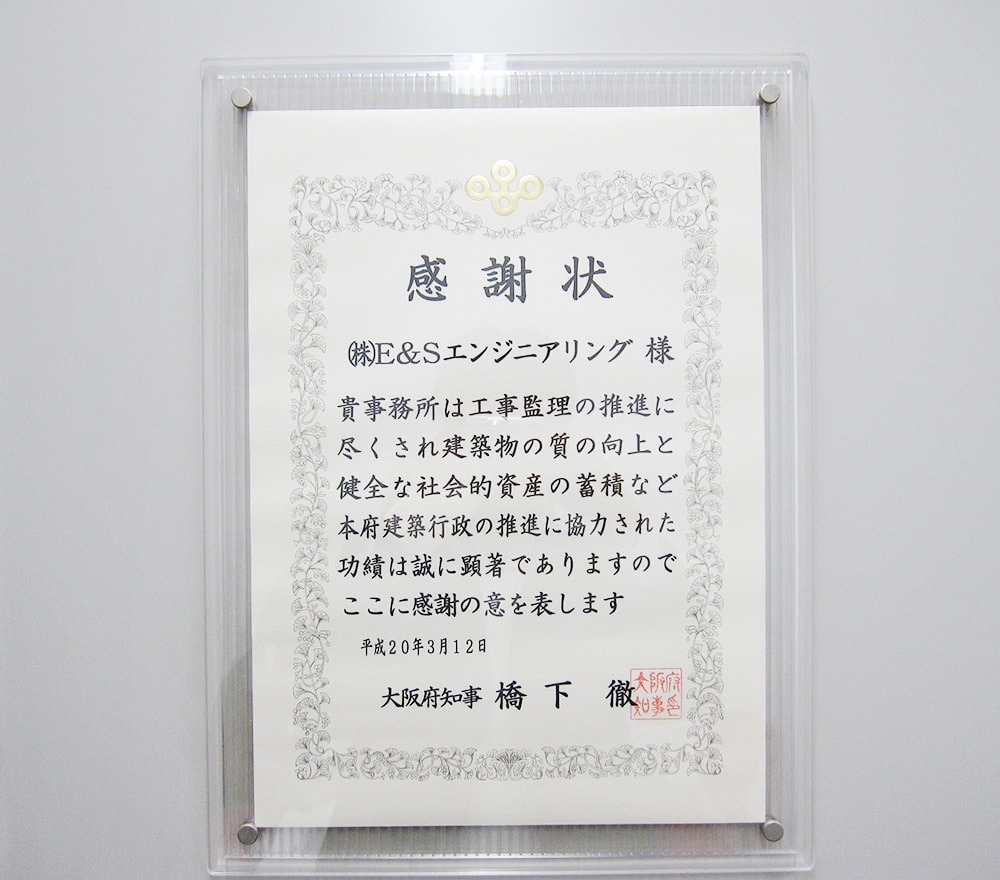 感謝状
㈱E&Sエンジニアリング 様
貴事務所は工事監理の推進に
尽くされ建築物の質の向上と
健全な社会的資産の蓄積など
本府建築行政の推進に協力された
功績は誠に顕著でありますので
ここに感謝の意を表します
平成20年3月12日
大阪府知事 橋下 徹
大阪府知事印